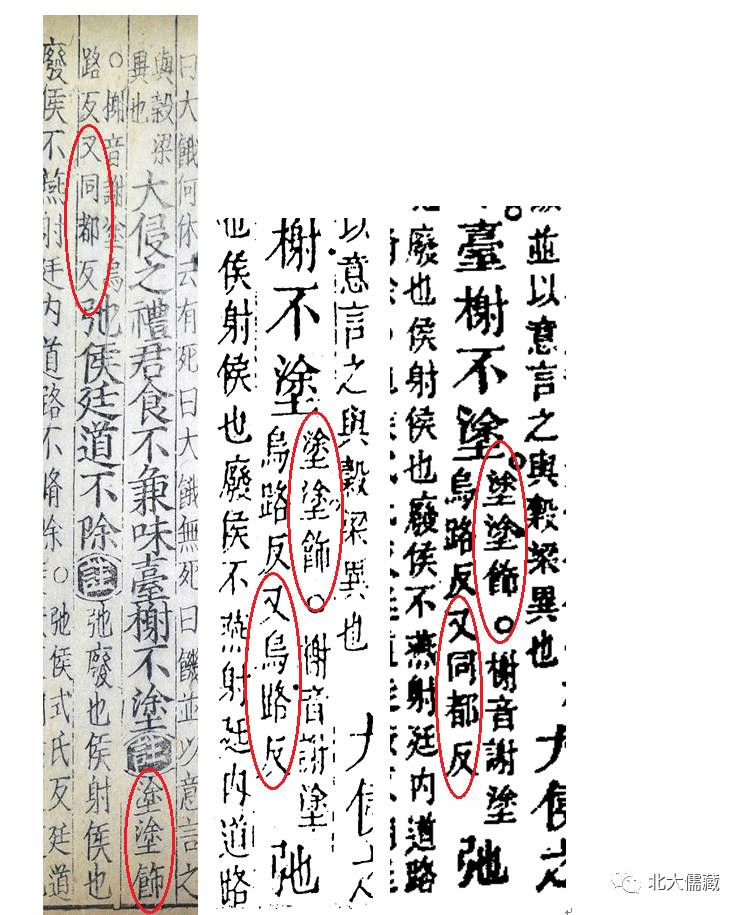 曰大餓何休云有死曰大餓無死曰饑並以意言之
與穀梁
異也
大侵之禮君食不兼味臺榭不塗注塗塗飾
○榭音謝塗烏
路反又同都反
弛侯廷道不除注弛廢也侯射侯也
廢侯不燕射廷内道路不脩除○弛侯式氏反廷道
以意言之與穀梁異也 大侵之
榭不塗
塗塗飾○榭音謝塗
烏路反又烏路反
弛
也侯射侯也廢侯不燕射廷内道路
並以意言之與穀梁異也 大侵之
臺榭不塗
塗塗飾○榭音謝塗
烏路反又同都反
弛
廢也侯射侯也廢侯不燕射廷内道路
北大儒藏